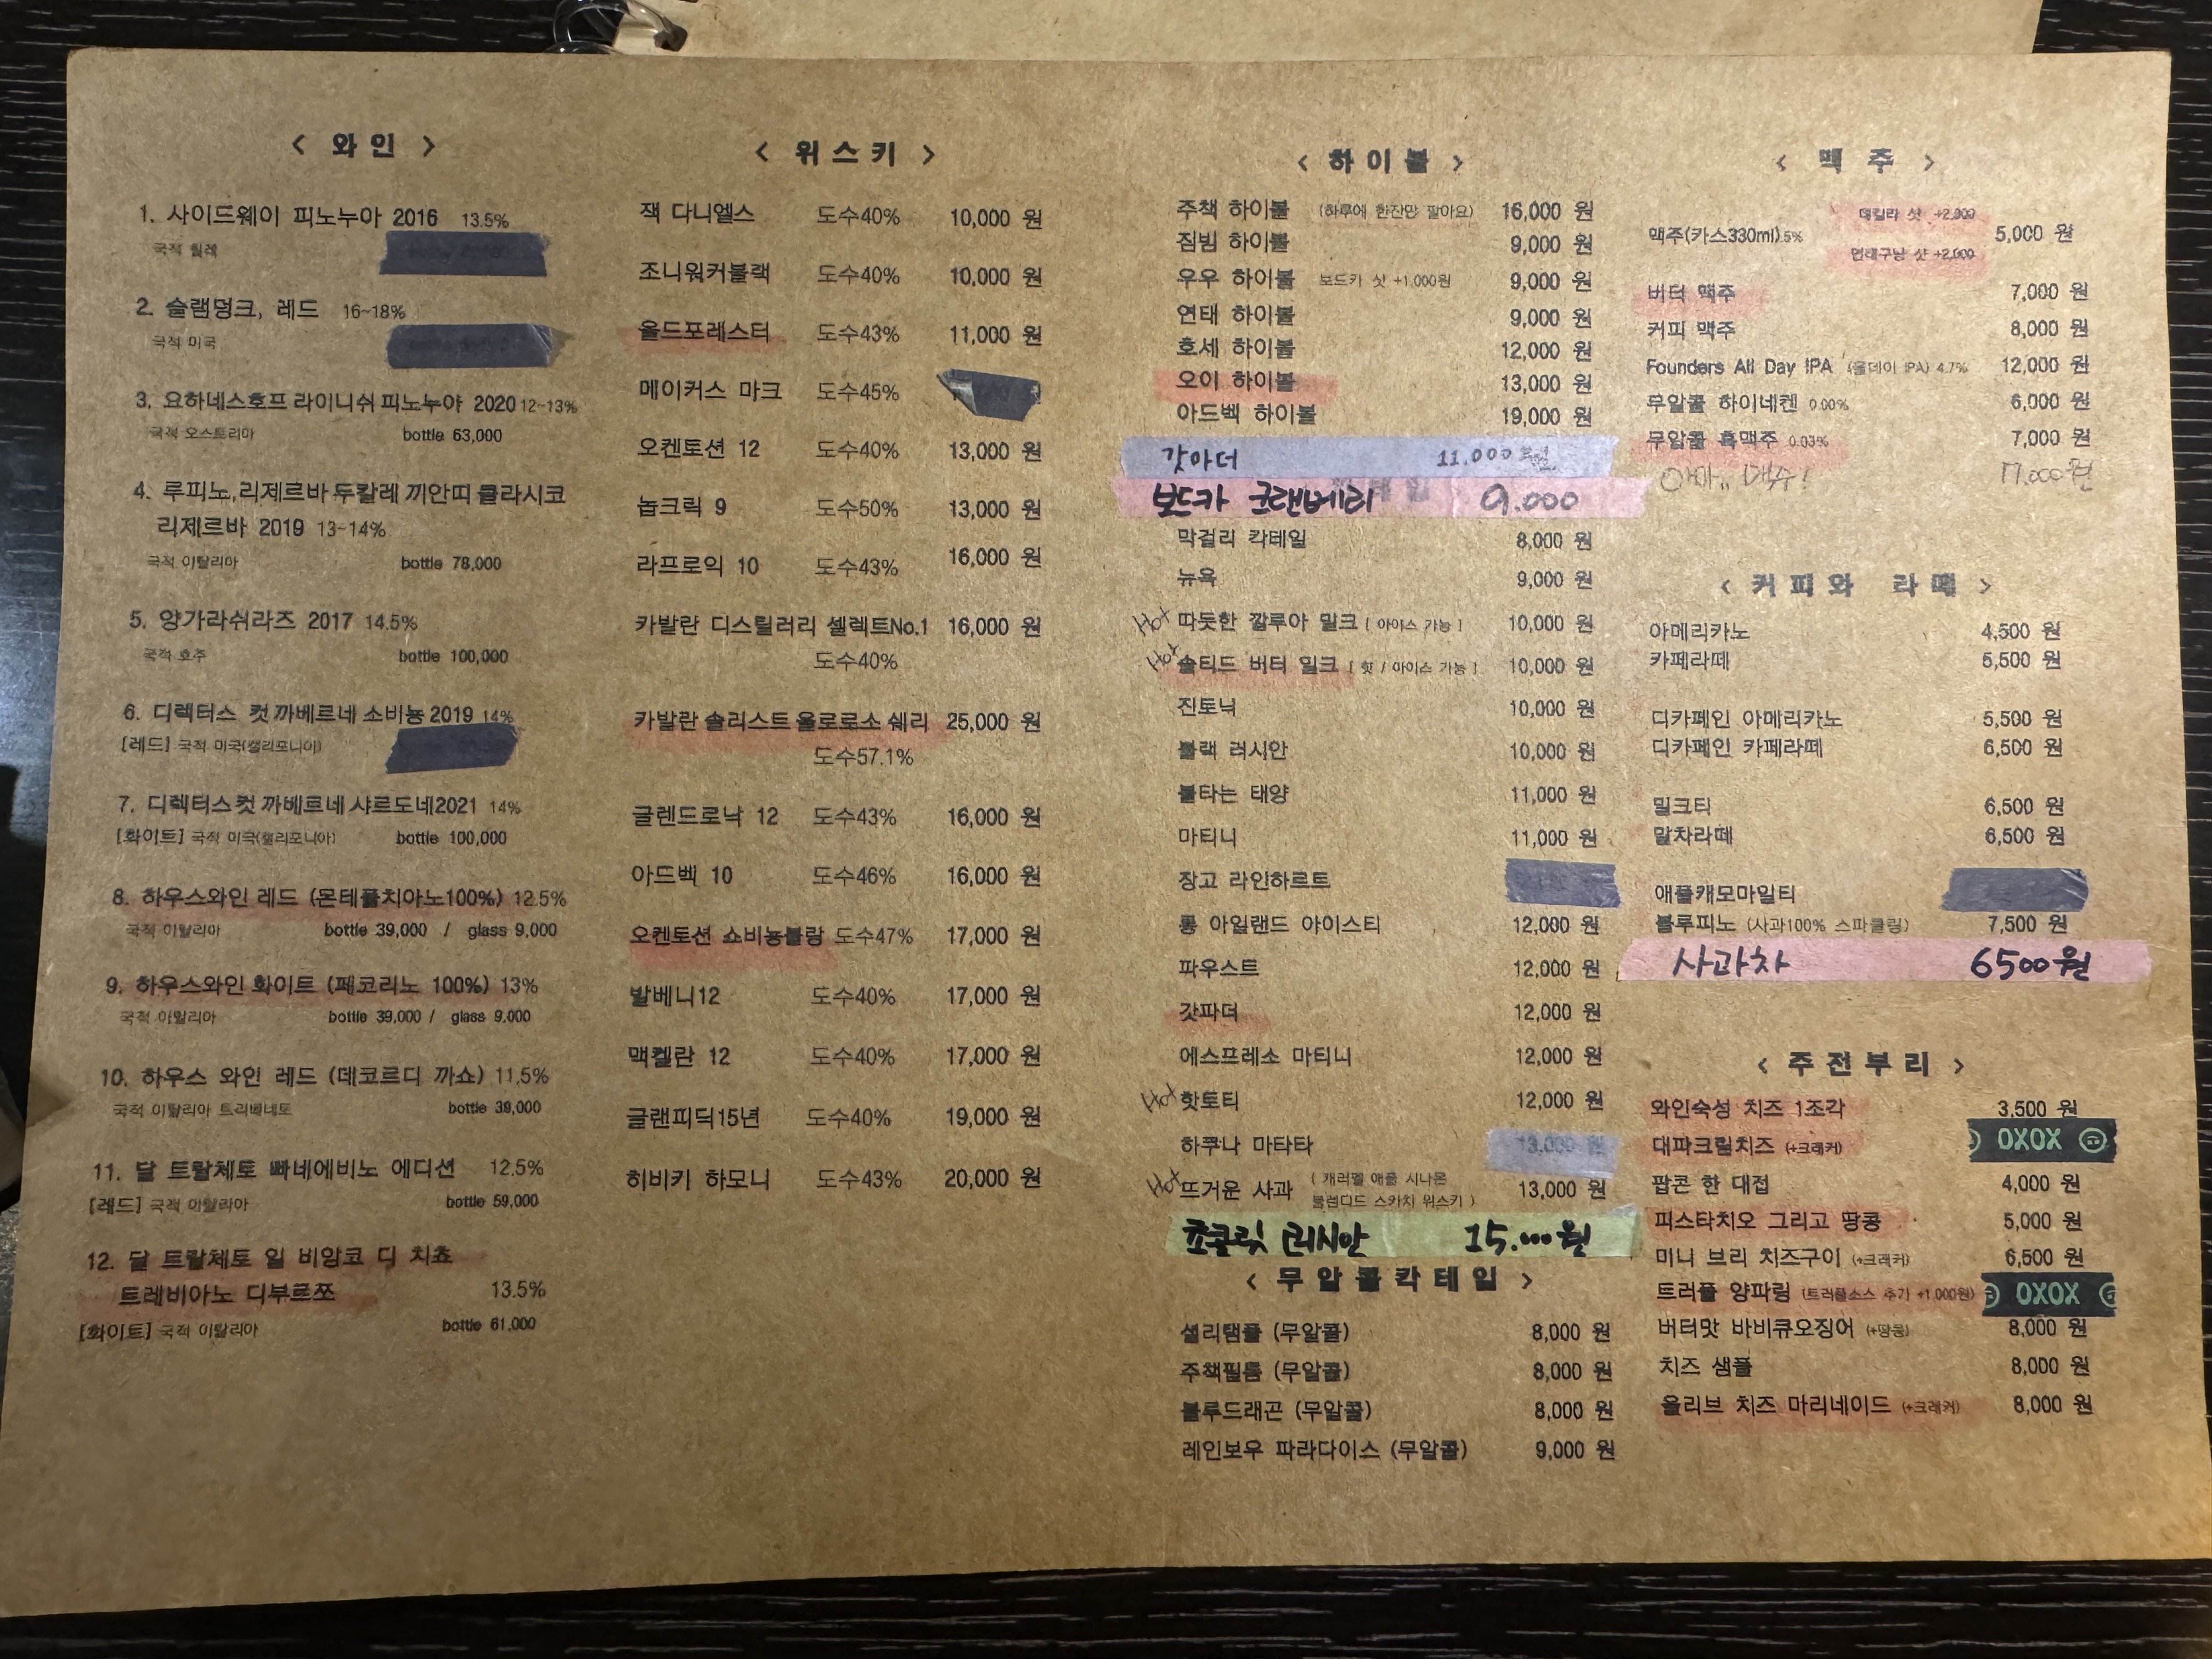 < 와 인 >
1. 사이드웨이 피노누아 2016 13.5%
국적 칠레
2. 슬램덩크, 레드 16~18%
국적 미국
3. 요하네스호프 라이니쉬 피노누아 2020 12~13%
국적 오스트리아 bottle 63,000
4. 루피노,리제르바 두칼레 끼안띠 클라시코
리제르바 2019 13~14%
국적 이탈리아 bottle 78,000
5. 양가라쉬라즈 2017 14.5%
국적 호주 bottle 100,000
6. 디렉터스 컷 까베르네 소비뇽 2019 14%
[레드] 국적 미국(캘리포니아)
7. 디렉터스 컷 까베르네 샤르도네2021 14%
[화이트] 국적 미국(캘리포니아) bottle 100,000
8. 하우스와인 레드 (몬테풀치아노100%) 12.5%
국적 이탈리아 bottle 39,000 / glass 9,000
9. 하우스와인 화이트 (페코리노 100%) 13%
국적 이탈리아 bottle 39,000 / glass 9,000
10. 하우스 와인 레드 (데코르디 까쇼) 11,5%
국적 이탈리아 트리베네토 bottle 39,000
11. 달 트랄체토 빠네에비노 에디션 12.5%
[레드] 국적 이탈리아 bottle 59,000
12. 달 트랄체토 일 비앙코 디 치쵸
트레비아노 디부르쪼 13.5%
[화이트] 국적 이탈리아 bottle 61,000
< 위 스 키 >
잭 다니엘스 도수40% 10,000 원
조니워커블랙 도수40% 10,000 원
올드포레스터 도수43% 11,000 원
메이커스 마크 도수45%
오켄토션 12 도수40% 13,000 원
놉크릭 9 도수50% 13,000 원
라프로익 10 도수43% 16,000 원
카발란 디스틸러리 셀렉트No.1 16,000 원
도수40%
카발란 솔리스트 올로로소 쉐리 25,000 원
도수57.1%
글렌드로낙 12 도수43% 16,000 원
아드벡 10 도수46% 16,000 원
오켄토션 쇼비뇽블랑 도수47% 17,000 원
발베니12 도수40% 17,000 원
맥켈란 12 도수40% 17,000 원
글랜피딕15년 도수40% 19,000 원
히비키 하모니 도수43% 20,000 원
< 하 이 볼 >
주책 하이볼 (하루에 한잔만 팔아요) 16,000 원
짐빔 하이볼 9,000 원
우우 하이볼 보드카 샷 +1,000원 9,000 원
연태 하이볼 9,000 원
호세 하이볼 12,000 원
오이 하이볼 13,000 원
아드벡 하이볼 19,000 원
갓아더 11,000원
보드카 크랜베리 9.000
막걸리 칵테일 8,000 원
뉴욕 9,000 원
Hot 따듯한 깔루아 밀크 [ 아이스 가능 ] 10,000 원
Hot 솔티드 버터 밀크 [ 핫 / 아이스 가능 ] 10,000 원
진토닉 10,000 원
블랙 러시안 10,000 원
불타는 태양 11,000 원
마티니 11,000 원
장고 라인하르트
롱 아일랜드 아이스티 12,000 원
파우스트 12,000 원
갓파더 12,000 원
에스프레소 마티니 12,000 원
Hot 핫토티 12,000 원
하쿠나 마타타 13,000 원
Hot 뜨거운 사과 ( 캐러멜 애플 시나몬
블렌디드 스카치 위스키 ) 13,000 원
쵸콜릿 러시안 15.000원
< 무 알 콜 칵 테 일 >
셜리템플 (무알콜) 8,000 원
주책필름 (무알콜) 8,000 원
블루드래곤 (무알콜) 8,000 원
레인보우 파라다이스 (무알콜) 9,000 원
< 맥 주 >
데킬라 샷 +2,000
맥주(카스330ml).5% 5,000 원
연태구냥 샷 +2,000
버터 맥주 7,000 원
커피 맥주 8,000 원
Founders All Day IPA (올데이 IPA) 4.7% 12,000 원
무알콜 하이네켄 0.00% 6,000 원
무알콜 흑맥주 0.03% 7,000 원
맥주!
< 커 피 와 라 떼 >
아메리카노 4,500 원
카페라떼 5,500 원
디카페인 아메리카노 5,500 원
디카페인 카페라떼 6,500 원
밀크티 6,500 원
말차라떼 6,500 원
애플캐모마일티
블루피노 (사과100% 스파클링) 7,500 원
사과차 6500원
< 주 전 부 리 >
와인숙성 치즈 1조각 3,500 원
대파크림치즈 (+크래커) OXOX
팝콘 한 대접 4,000 원
피스타치오 그리고 땅콩 5,000 원
미니 브리 치즈구이 (+크래커) 6,500 원
트러플 양파링 (트러플소스 추가 +1,000원) OXOX
버터맛 바비큐오징어 (+땅콩) 8,000 원
치즈 샘플 8,000 원
올리브 치즈 마리네이드 (+크래커) 8,000 원